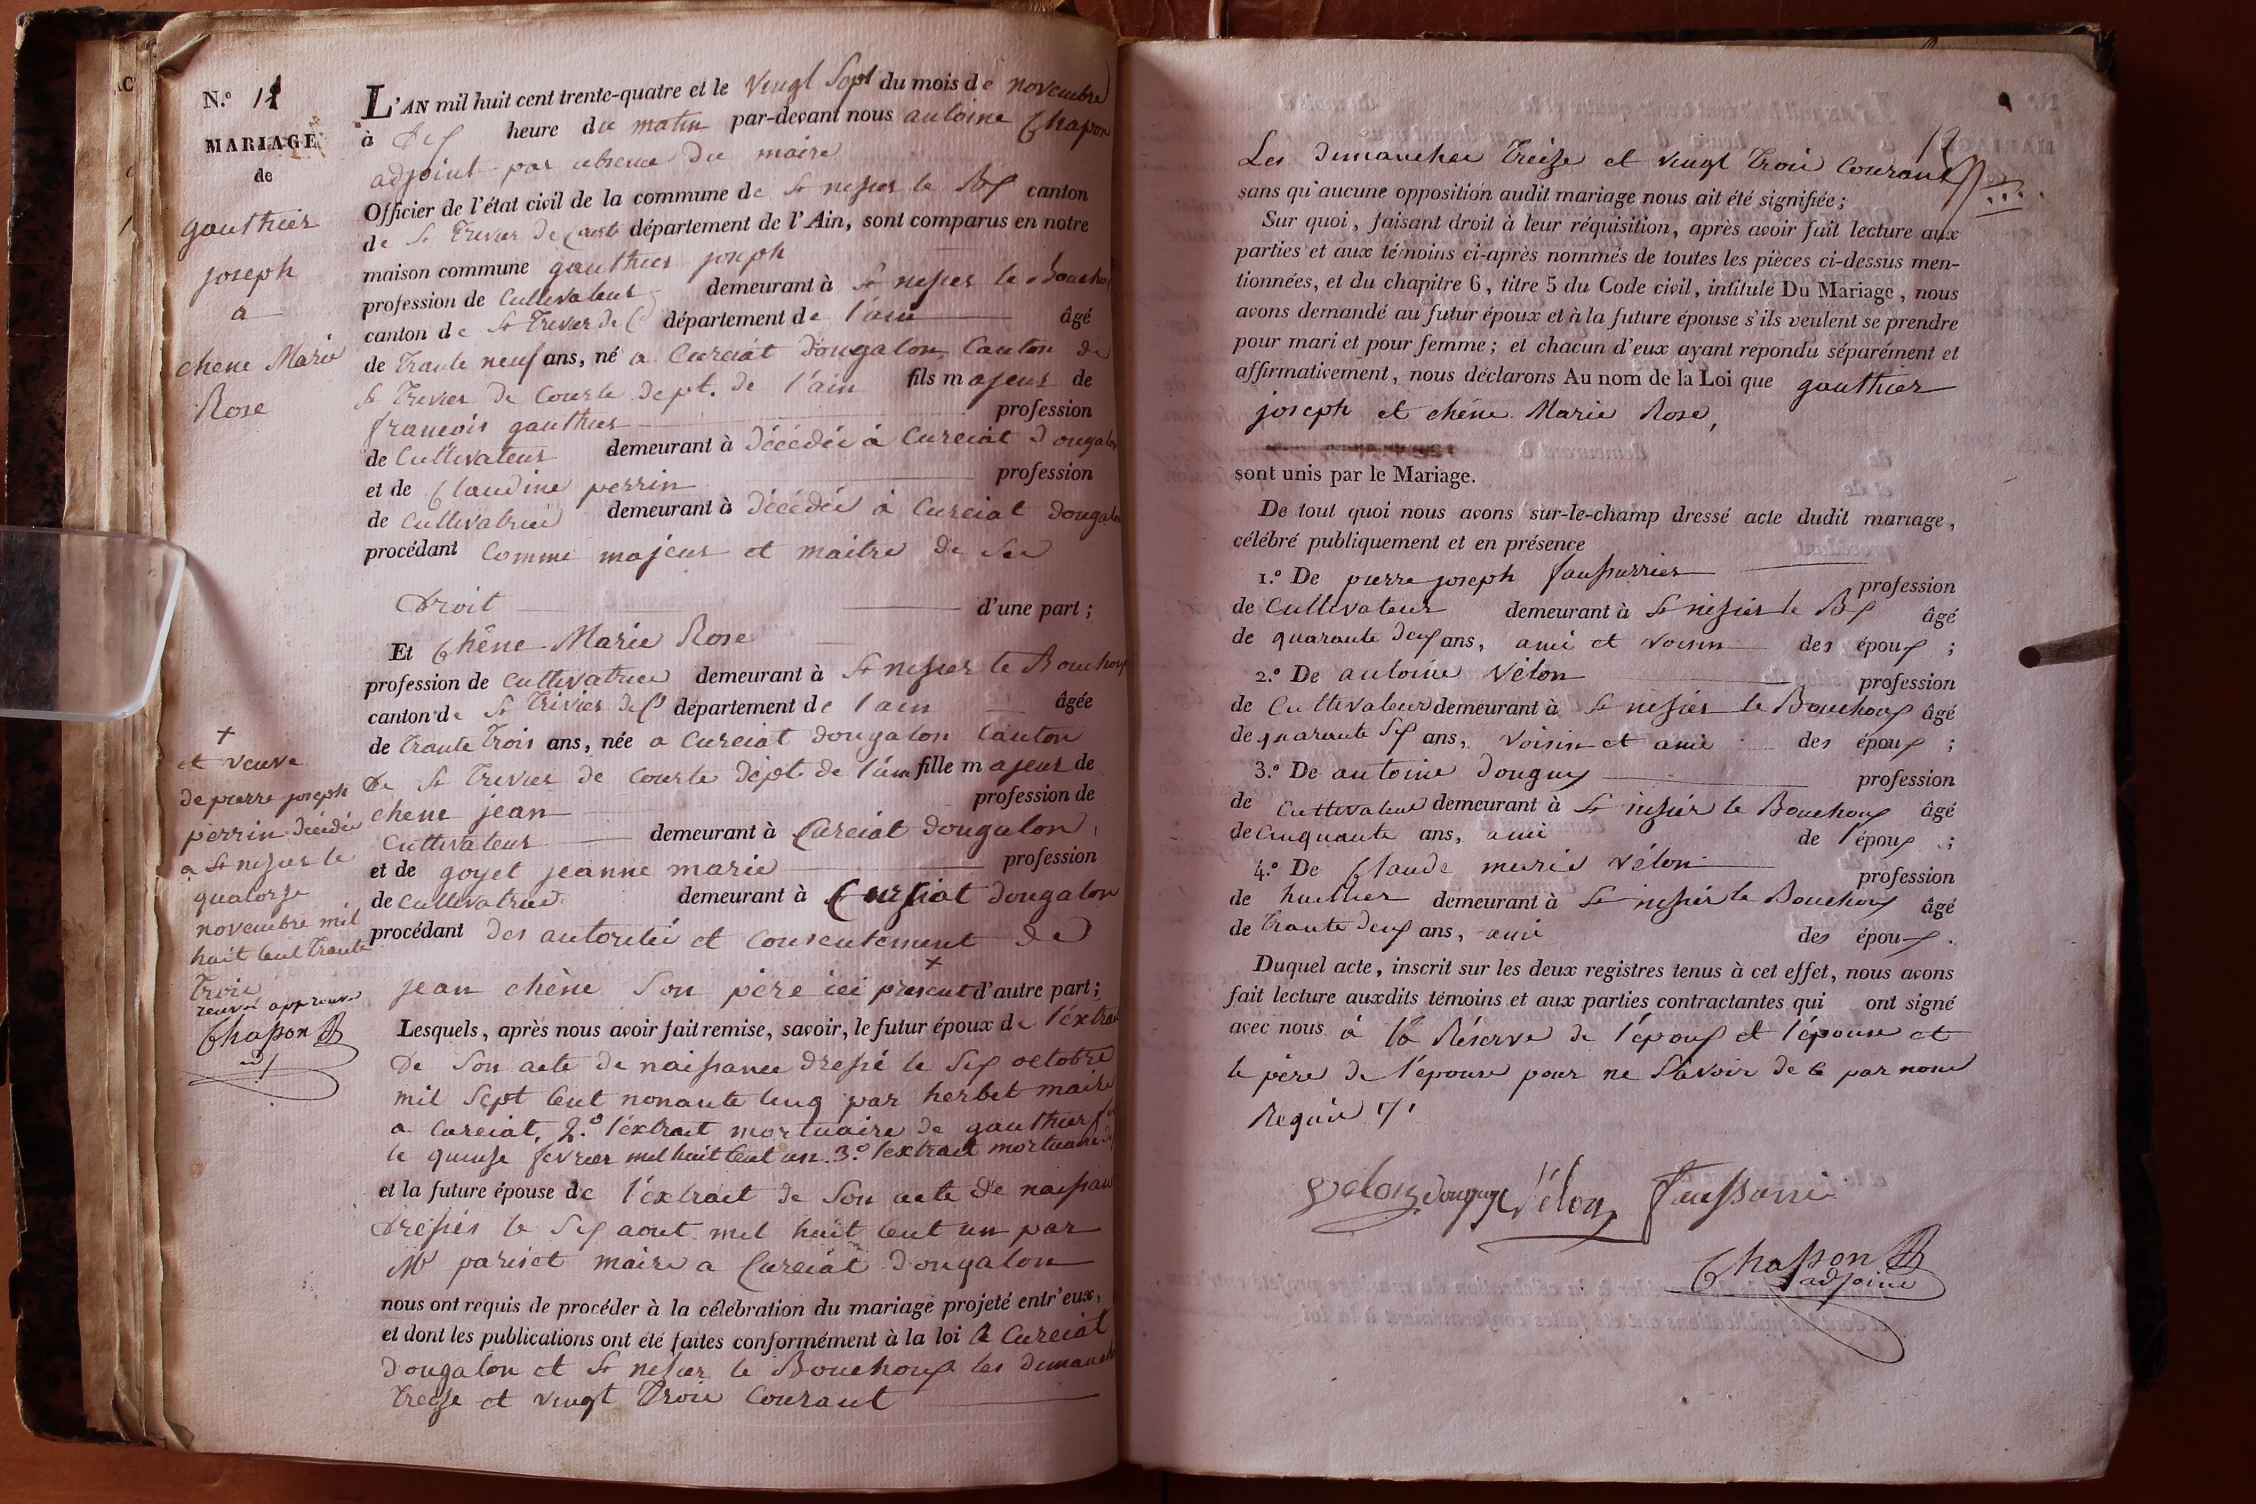 N.º 12
MARIAGE
de
gauthier
joseph
a
chene Marie
Rose
L'AN mil huit cent trente-quatre et le vingt Sept du mois de novembre
à Dix heure du matin par-devant nous antoine Chapon
adjoint par absence du maire
Officier de l'état civil de la commune de St nisier le Bx canton
de St Trevier de Courte département de l'Ain, sont comparus en notre
maison commune gauthier joseph
profession de Cultivateur demeurant à St nisier le Bouchou
canton de St Trevier de C département de l'ain âgé
de trante neuf ans, né a Curciat dongalon Canton de
St Trevier de Courte dept. de l'ain fils majeur de
francois gauthier profession
de Cultivateur demeurant à décédée à Curciat dongalon
et de Claudine perrin profession
de cultivatrice demeurant à décédée à Curciat dongalon
procédant comme majeur et maitre de Ses
Droit d'une part ;
Et Chêne Marie Rose
profession de cultivatrice demeurant à St nisier le Bouchoux
canton de St Trivier de C département de l'ain âgée
de trante trois ans, née a Curciat dongalon Canton
De St Trevier de Courte dépt de l'ain fille majeur de
chene jean profession de
Cultivateur demeurant à Curciat dongalon,
et de goyet jeanne marie profession
de cultivatrice demeurant à Curciat dongalon
procédant des autorité et consentement de
+
jean chène Son père ici présent d'autre part ;
+
et veuve
de pierre joseph
perrin décédé
a St nisier le
quatorze
novembre mil
huit Cent trante
trois
renvoi approuvé
Chapon
adj
Lesquels, après nous avoir fait remise, savoir, le futur époux de l'éxtrait
De Son acte de naissance dressé le Six octobre
mil Sept Cent nonante Cinq par herbet maire
a Curciat, 2.º l'éxtrait mortuaire de gauthier
le quinze fevrier mil huit Cent un. 3.º l'extrait mortuaire
et la future épouse de l'éxtrait de Son acte de naissan
Dressés le Six aout mil huit Cent un par
Mr parisot maire a Curciat Dongalon
nous ont requis de procéder à la célébration du mariage projeté entr'eux,
et dont les publications ont été faites conformément à la loi à Curciat
Dongalon et St nisier le Bouchoux les dimanche
treize et vingt trois Courant
12
Les dimanches treize et vingt trois Courant
sans qu'aucune opposition audit mariage nous ait été signifiée ;
Sur quoi, faisant droit à leur réquisition, après avoir fait lecture aux
parties et aux témoins ci-après nommés de toutes les pièces ci-dessus men-
tionnées, et du chapitre 6, titre 5 du Code civil, intitulé Du Mariage, nous
avons demandé au futur époux et à la future épouse s'ils veulent se prendre
pour mari et pour femme ; et chacun d'eux ayant répondu séparément et
affirmativement, nous déclarons Au nom de la Loi que gauthier
joseph et chéne Marie Rose,
sont unis par le Mariage.
De tout quoi nous avons sur-le-champ dressé acte dudit mariage,
célébré publiquement et en présence
1.º De pierre joseph faussurrier profession
de Cultivateur demeurant à St nisier le Bx âgé
de quarante deux ans, ami et voisin des époux ;
2.º De antoine Vélon profession
de Cultivateur demeurant à St nisier le Bouchoux âgé
de quarante Six ans, voisin et ami des époux ;
3.º De antoine donguy profession
de Cultivateur demeurant à St nisier le Bouchoux âgé
de Cinquante ans, ami de l'époux ;
4.º De Claude marie Vélon profession
de huissier demeurant à St nisier le Bouchoux âgé
de trante deux ans, ami des époux.
Duquel acte, inscrit sur les deux registres tenus à cet effet, nous avons
fait lecture auxdits témoins et aux parties contractantes qui ont signé
avec nous à la Réserve de l'époux et l'épouse et
le père de l'épouse pour ne Savoir de ce par nous
Requis
Velon donguy Vélon faussurri
Chapon
adjoint